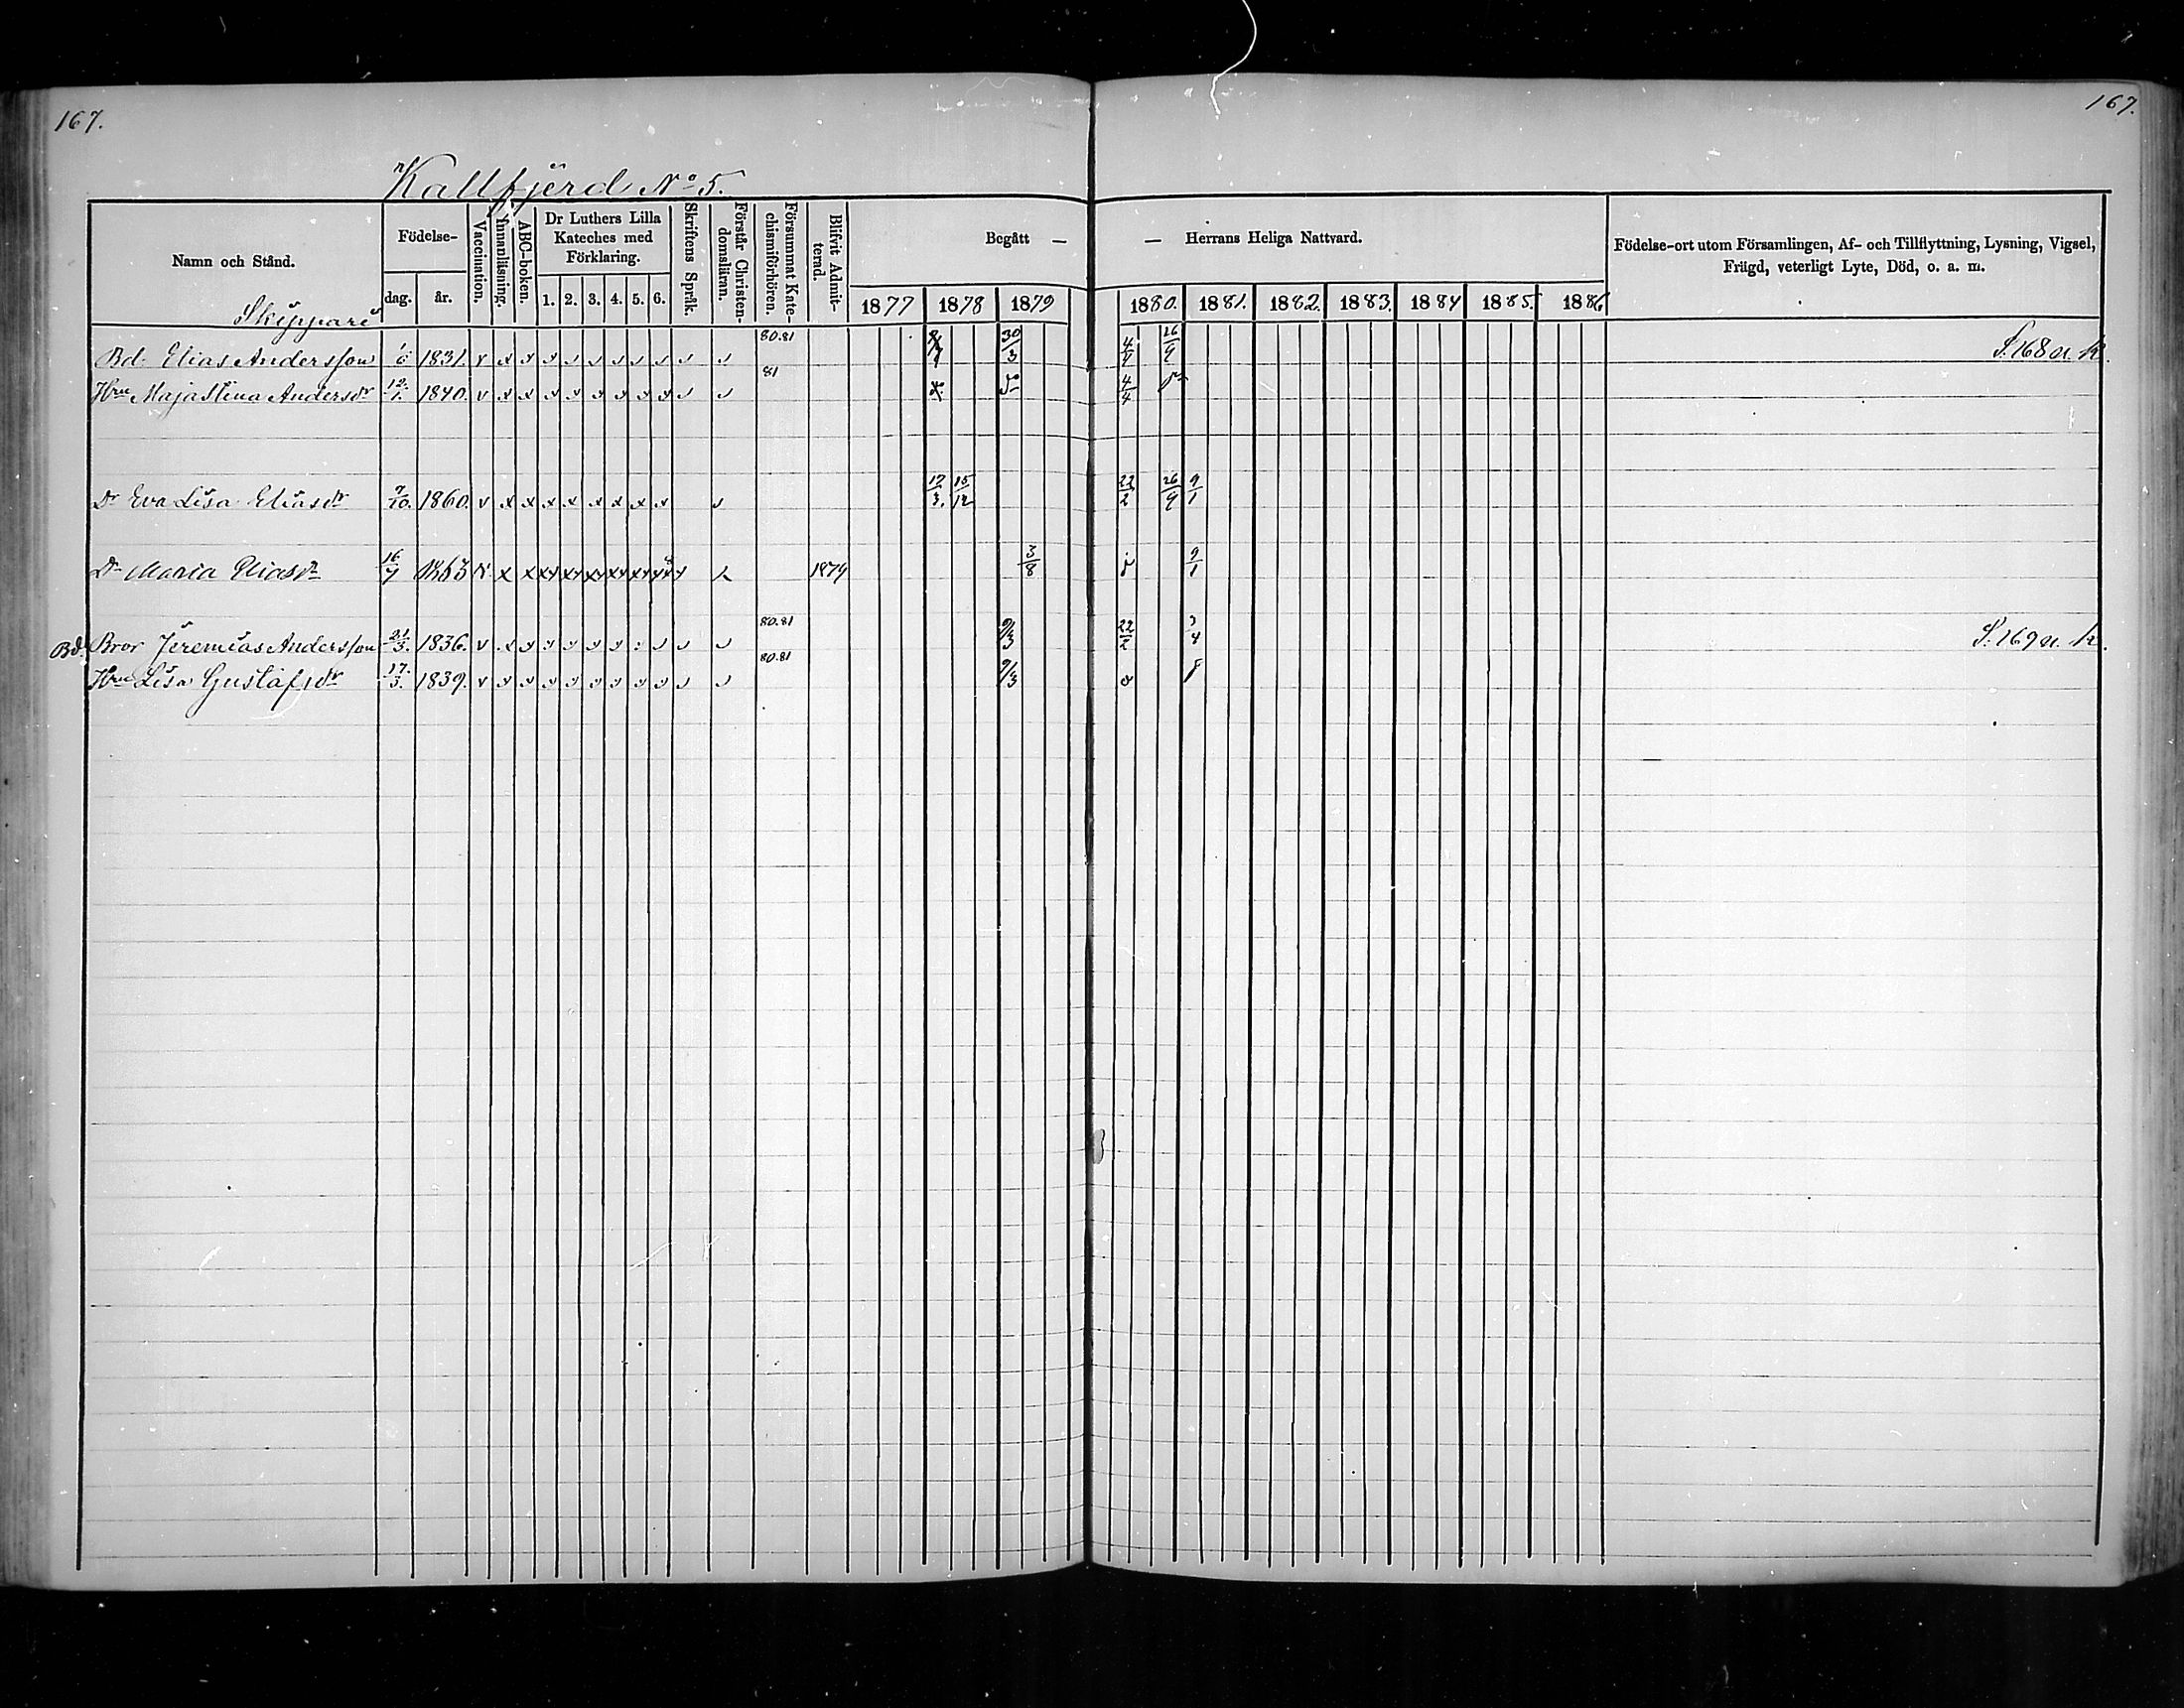 167.
167.
Kallfjerd No 5.
Namn och Stånd.
Födelse-
dag.
år.
Vaccination.
Innanläsning.
ABC-boken.
Dr Luthers Lilla Kateches med Förklaring.
1. 2. 3. 4. 5. 6.
Skriftens Språk.
Förstår Christen-domsläran.
Försummat Kate-chismiförhören.
Blifvit Admit-terad.
Begått — — Herrans Heliga Nattvard.
1877 1878 1879 1880. 1881. 1882. 1883. 1884 1885. 1886
Födelse-ort utom Församlingen, Af- och Tillflyttning, Lysning, Vigsel,
Frägd, veterligt Lyte, Död, o. a. m.
Skippari
Bd. Elias Andersson 1831. v 80.81 30/3 4/4 26/9 S. 168 n. k.
Hru Maja Stina Andersdr 12/1. 1840. v 81 4/4
Dr Eva Lisa Eliasdr 7/10. 1860. v 17/3. 15/12 22/2 26/9 9/1
Dr Maria Eliasdr 16/7 1863 1879 3/8 9/1
Bd. Bror Jeremias Andersson 21/3. 1836. v 80.81 9/3 22/2 3/4 S. 169 n. k.
Hru Lisa Gustafsdr 17/3. 1839. v 80.81 9/3